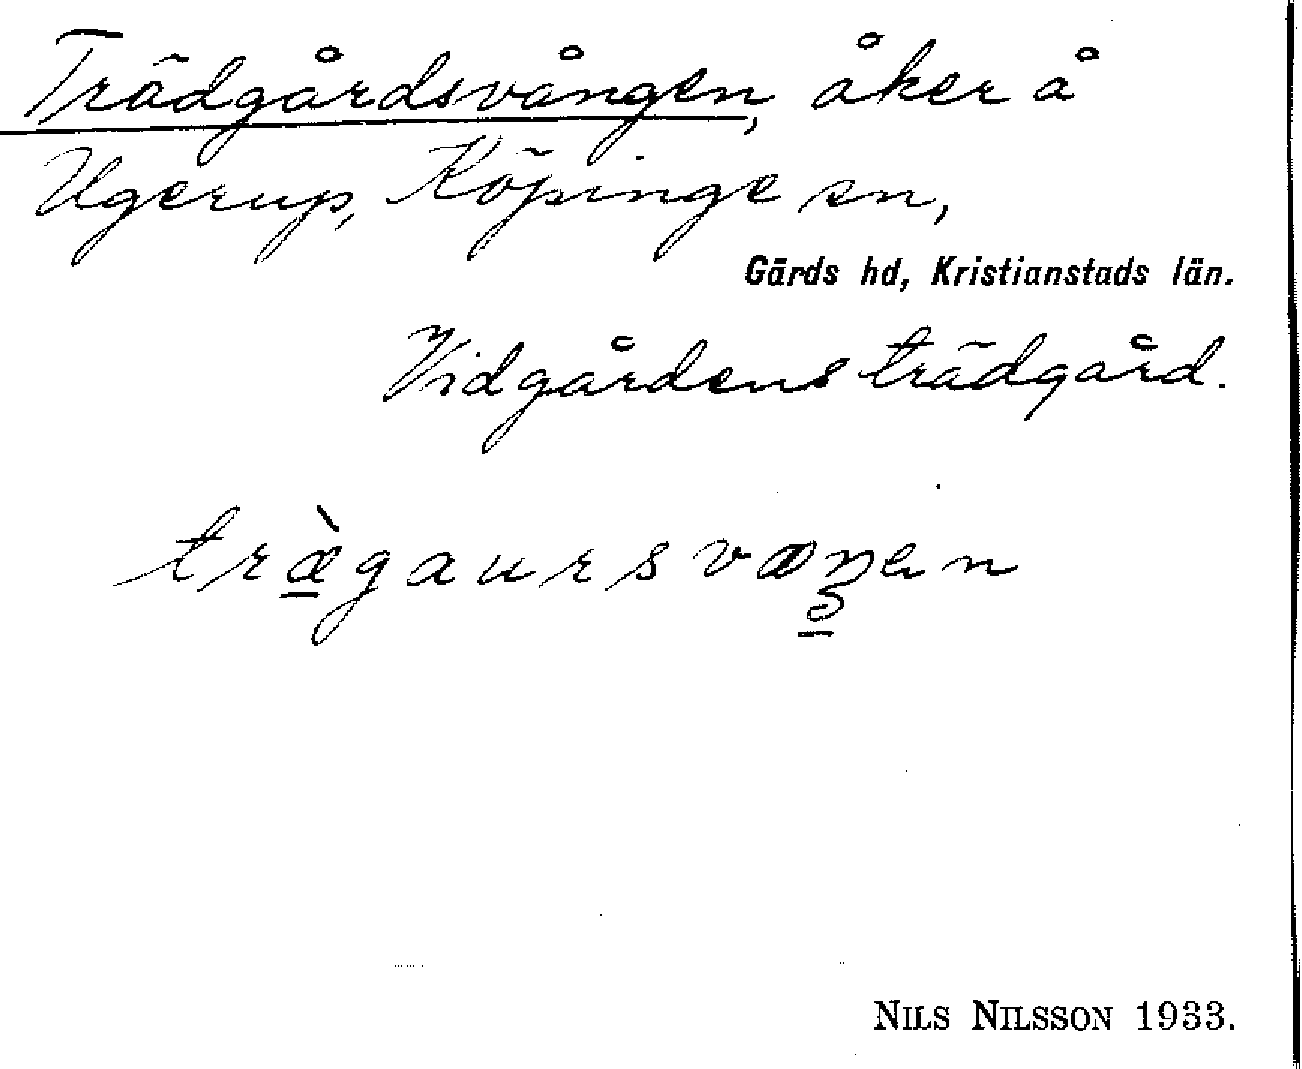 Trädgårdsvången, åker å
Ugerup, Köpinge sn,
Gärds hd, Kristianstads län.
Vidgårdens trädgård.
NILS NILSSON 1933.